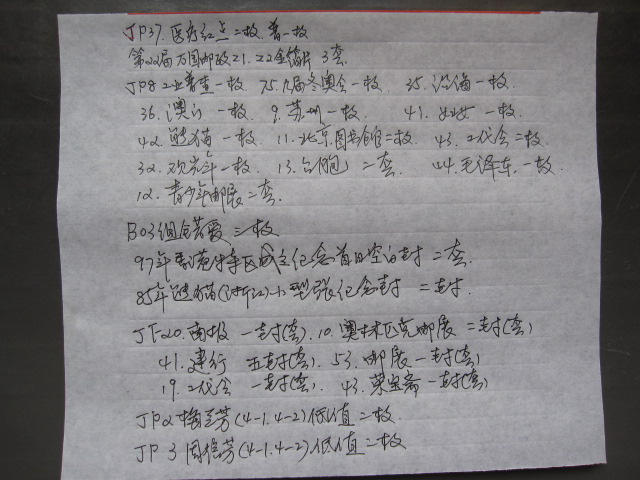 JP37.医疗红点二枚.普一枚
第22届万国邮政21.22金箔片 3套.
JP8工业普查一枚 75.17届冬奥会一枚 35.沿海一枚.
36.澳门一枚. 9.苏州一枚. 41.妇女一枚.
42.熊猫一枚. 11.北京图书馆二枚. 43.工代会二枚.
32.农光年一枚. 13.台胞二套. 44.毛泽东一枚.
12.青少年邮展二套.
B03组含若爱三枚
97年香港特区成立纪念首日空白封二套.
85年熊猫(浙江)小型张纪念封二封.
JF20.南极一封(套). 10.奥林匹克邮展二封(套)
41.建行五封(套). 53.邮展一封(套)
19.工代会一封(套). 43.荣宝斋一封(套)
JP2梅兰芳(4-1.4-2)低值二枚.
JP3周信芳(4-1.4-2)低值二枚